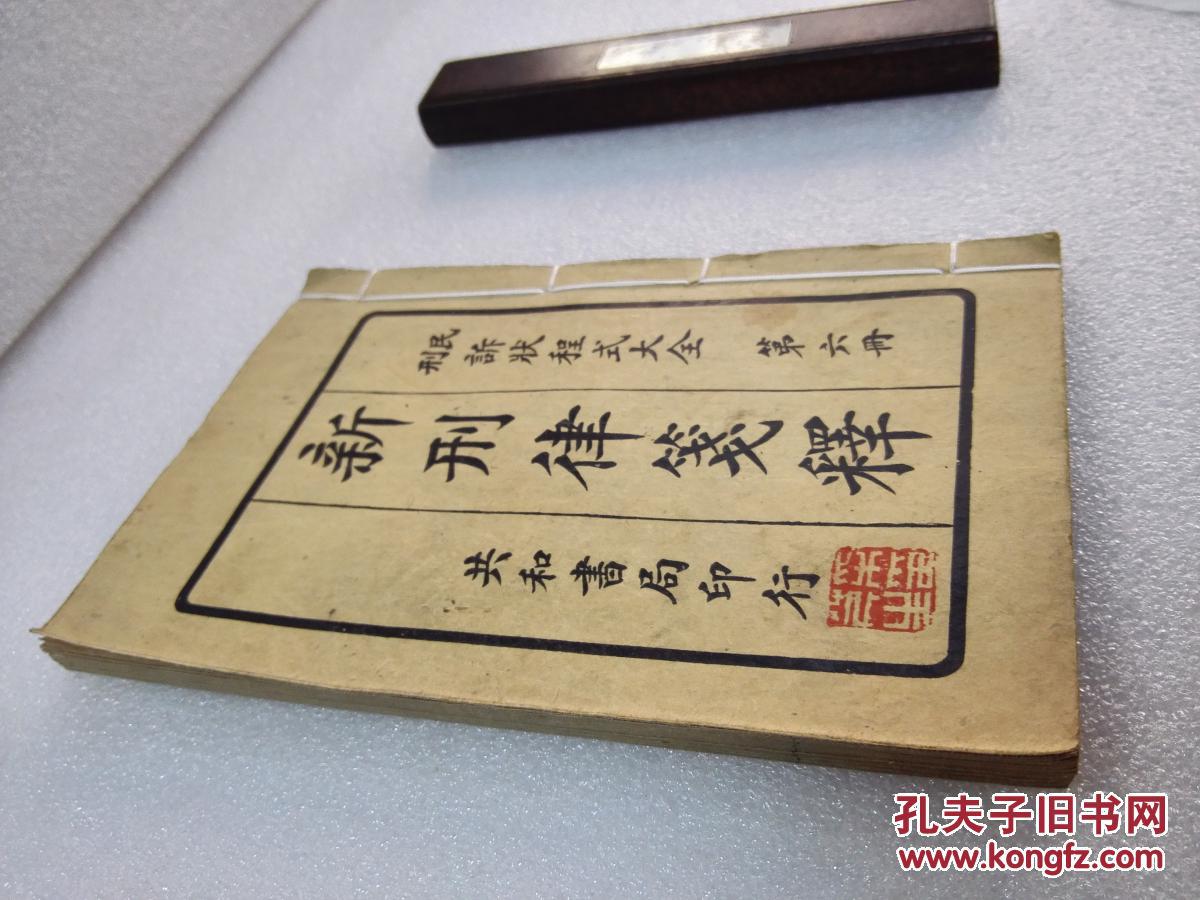 民刑訴狀程式大全 第六冊
新刑律箋釋
共和書局印行
孔夫子旧书网
www.kongfz.com